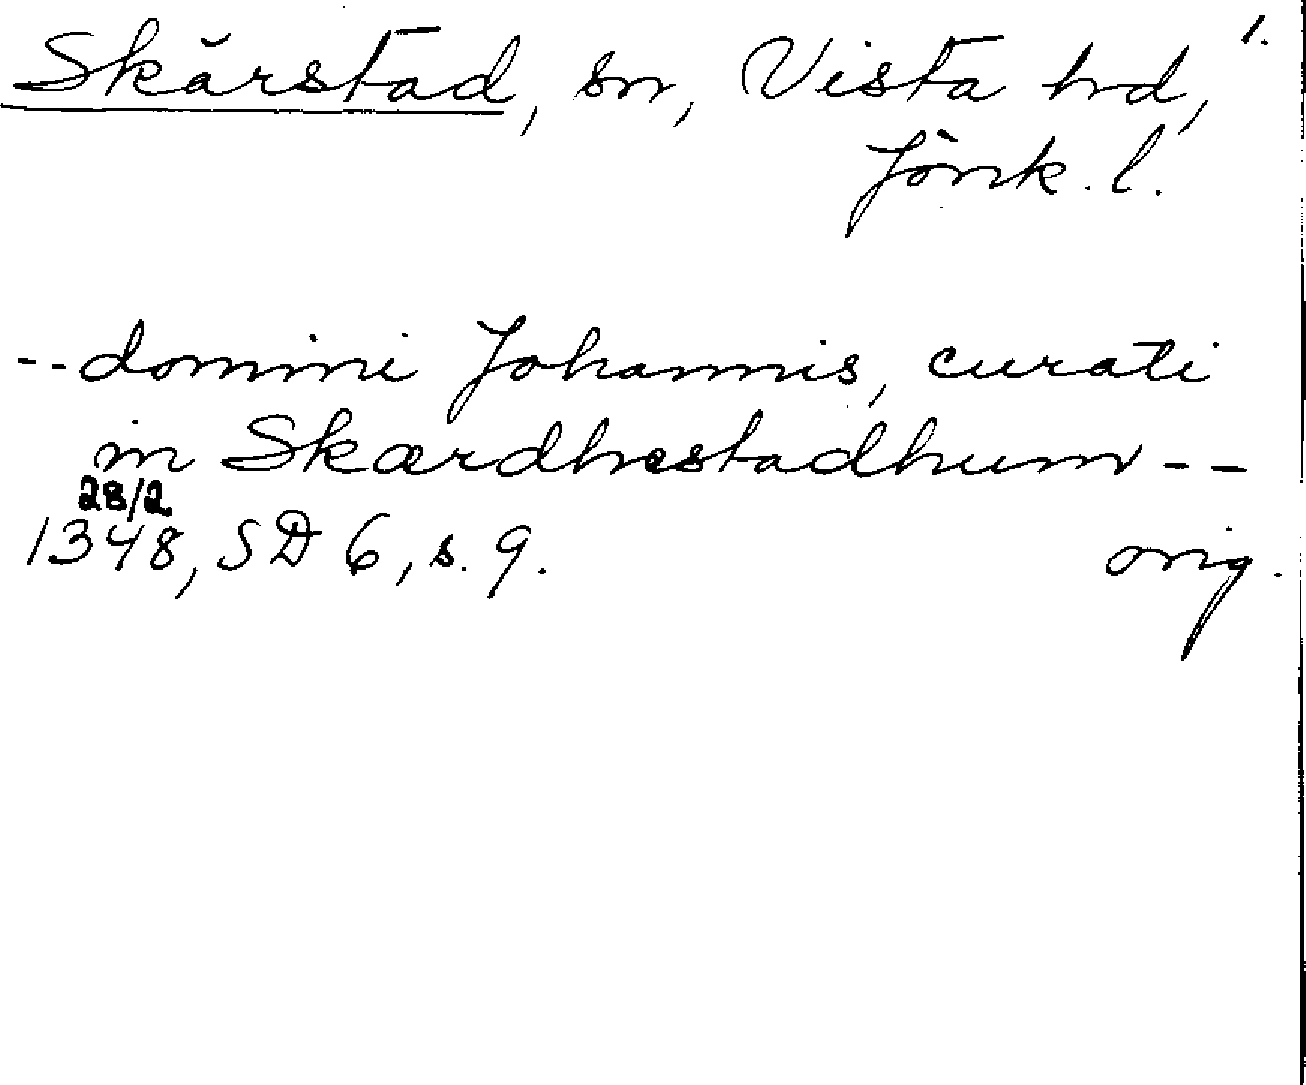 Skärstad, sn, Vista hd, 1.
Jönk. l.
-- domini Johannis, curati
in Skærdhestadhum --
28/2
1348, SD 6, s. 9. orig.